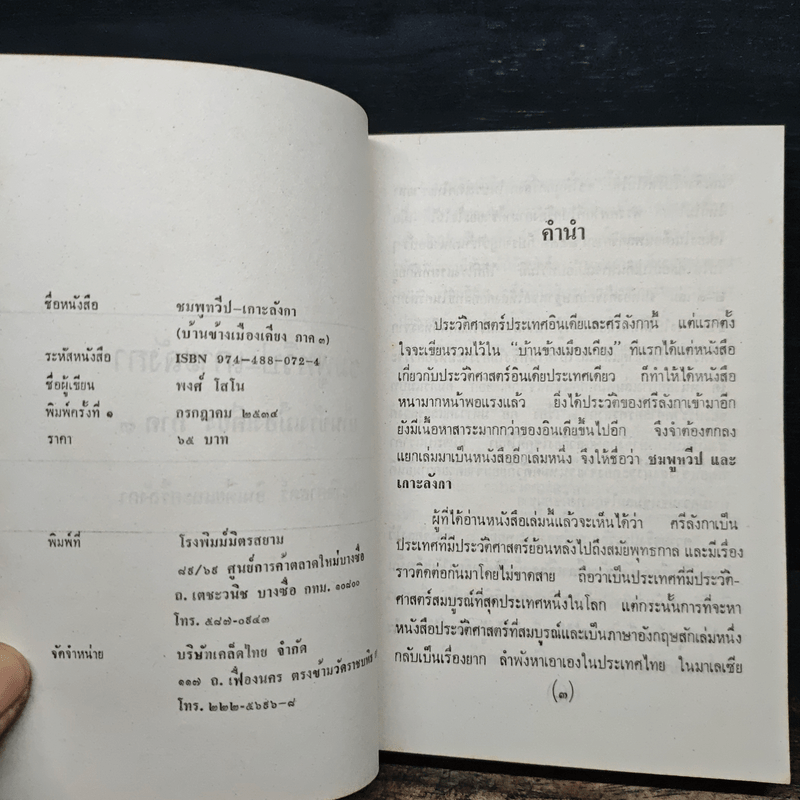 ชื่อหนังสือ ชมพูทวีป-เกาะลังกา
(บ้านข้างเมืองเคียง ภาค ๓)
ระหัสหนังสือ ISBN 974-488-072-4
ชื่อผู้เขียน พงศ์ โสโน
พิมพ์ครั้งที่ ๑ กรกฎาคม ๒๕๓๔
ราคา ๖๕ บาท
พิมพ์ที่ โรงพิมพ์มิตรสยาม
๘๙/๖๙ ศูนย์การค้าตลาดใหม่บางซื่อ
ถ. เตชะวนิช บางซื่อ กทม. ๑๐๘๐๐
โทร. ๕๘๗-๐๙๔๓
จัดจำหน่าย บริษัทเคล็ดไทย จำกัด
๑๑๗ ถ. เฟื่องนคร ตรงข้ามวัดราชบพิธ
โทร. ๒๒๒-๕๖๙๖-๘
คำนำ
ประวัติศาสตร์ประเทศอินเดียและศรีลังกานี้ แต่แรกตั้ง
ใจจะเขียนรวมไว้ใน “บ้านข้างเมืองเคียง” ทีแรกได้แต่หนังสือ
เกี่ยวกับประวัติศาสตร์อินเดียประเทศเดียว ก็ทำให้ได้หนังสือ
หนามากหน้าพอแรงแล้ว ยิ่งได้ประวัติของศรีลังกาเข้ามาอีก
ยังมีเนื้อหาสาระมากกว่าของอินเดียขึ้นไปอีก จึงจำต้องตกลง
แยกเล่มมาเป็นหนังสืออีกเล่มหนึ่ง จึงให้ชื่อว่า ชมพูทวีป และ
เกาะลังกา
ผู้ที่ได้อ่านหนังสือเล่มนี้แล้วจะเห็นได้ว่า ศรีลังกาเป็น
ประเทศที่มีประวัติศาสตร์ย้อนหลังไปถึงสมัยพุทธกาล และมีเรื่อง
ราวติดต่อกันมาโดยไม่ขาดสาย ถือว่าเป็นประเทศที่มีประวัติ-
ศาสตร์สมบูรณ์ที่สุดประเทศหนึ่งในโลก แต่กระนั้นการที่จะหา
หนังสือประวัติศาสตร์ที่สมบูรณ์และเป็นภาษาอังกฤษสักเล่มหนึ่ง
กลับเป็นเรื่องยาก ลำพังหาเอาเองในประเทศไทย ในมาเลเซีย
(๓)